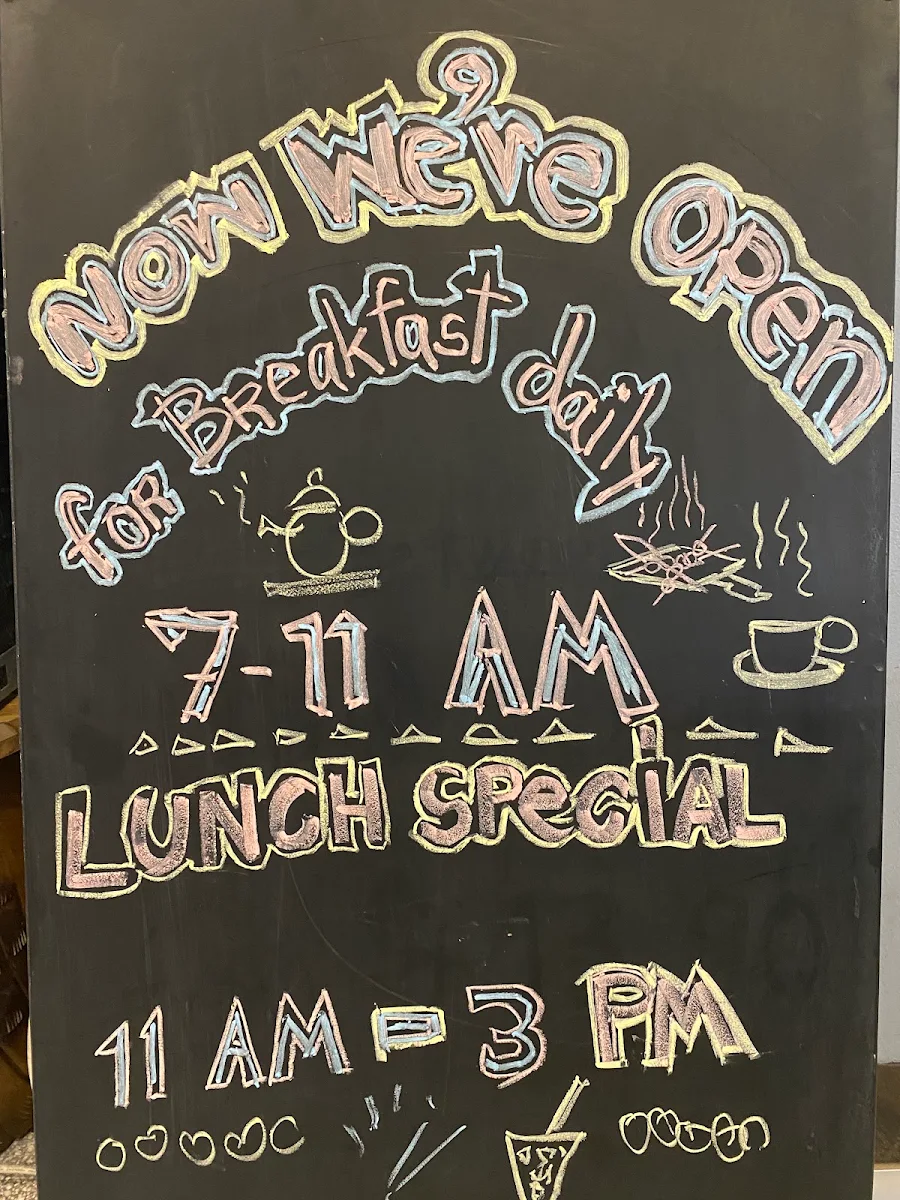 Now We're Open
for Breakfast daily
7-11 AM
LUNCH SPeCiAL
11 AM - 3 PM